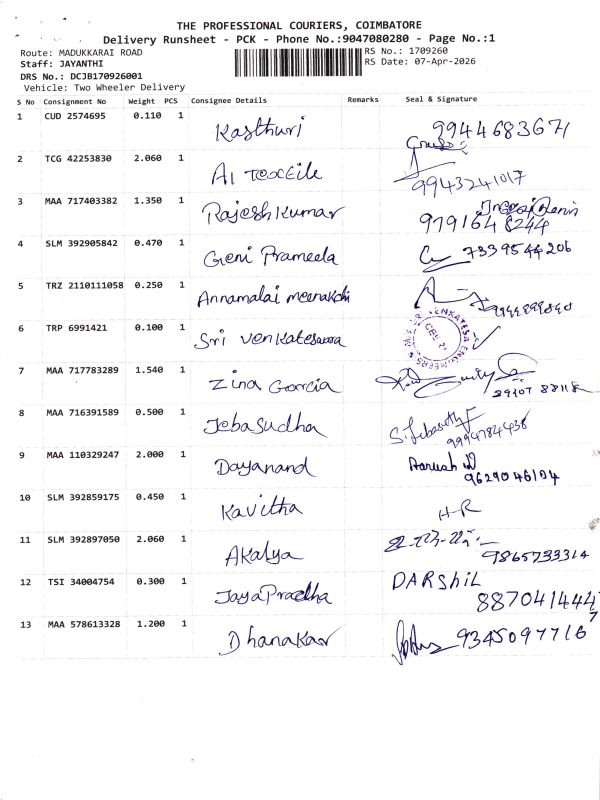 THE PROFESSIONAL COURIERS, COIMBATORE
Delivery Runsheet - PCK - Phone No.:9047080280 - Page No.:1
Route: MADUKKARAI ROAD RS No.: 1709260
Staff: JAYANTHI RS Date: 07-Apr-2026
DRS No.: DCJB170926001
Vehicle: Two Wheeler Delivery
S No Consignment No Weight PCS Consignee Details Remarks Seal & Signature
1 CUD 2574695 0.110 1 Kasthuri 9944683671
2 TCG 42253830 2.060 1 AI Textile 9943241017
3 MAA 717403382 1.350 1 Rajeshkumar 9791648244
4 SLM 392905842 0.470 1 Geni Prameela 7339544206
5 TRZ 2110111058 0.250 1 Annamalai meenakchi
6 TRP 6991421 0.100 1 Sri venkateswara
7 MAA 717783289 1.540 1 Zina Garcia
8 MAA 716391589 0.500 1 Jebasudha 9994784438
9 MAA 110329247 2.000 1 Dayanand 9629046104
10 SLM 392859175 0.450 1 Kavitha H-R
11 SLM 392897050 2.060 1 Akalya 9865733314
12 TSI 34004754 0.300 1 JayaPradha DARShiL
887041444
13 MAA 578613328 1.200 1 Dhanakar 93450977167